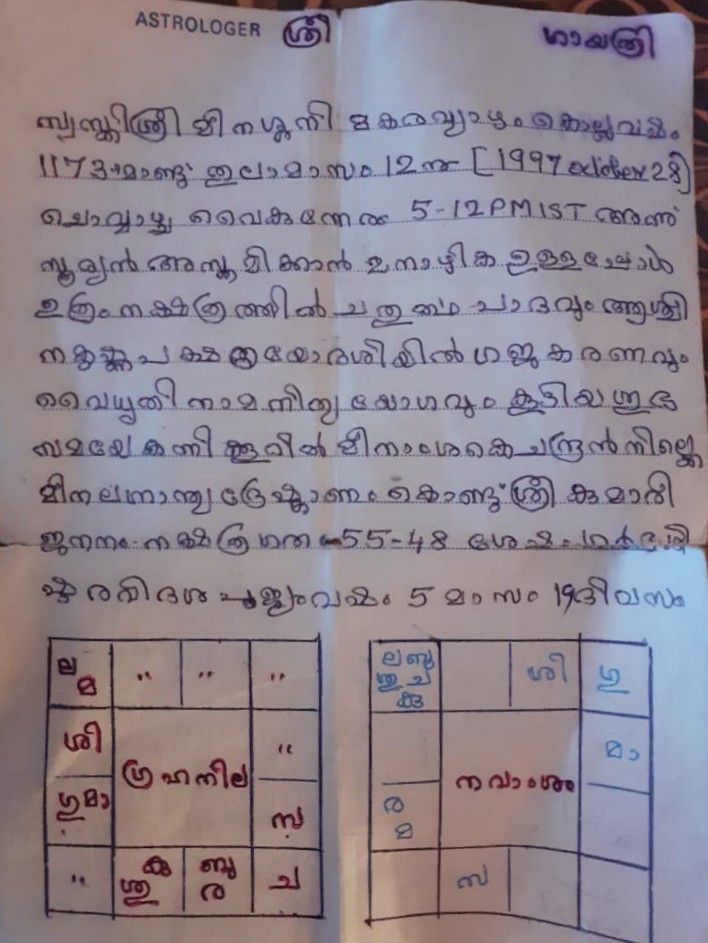 ASTROLOGER ശ്രീ ഗായത്രി
സ്വസ്തിശ്രീ മീനശനി മകരവ്യാഴം കൊല്ലവർഷം
1173-ാമാണ്ട് തുലാമാസം 12നു [1997 october 28]
ചൊവ്വാഴ്ച വൈകുന്നേരം 5-12PM IST അന്ന്
സൂര്യൻ അസ്തമിക്കാൻ നാഴിക ഉള്ളപ്പോൾ
ഉത്രം നക്ഷത്രത്തിൽ ചതുർത്ഥ പാദവും
പക്ഷ ത്രയോദശിയിൽ ഗജകരണവും
വൈധൃതി നാമനിത്യയോഗവും കൂടിയ ശുഭ
സമയേ കന്നി മീനാംശകെ ചന്ദ്രൻ നില്ക്കെ
മീനലഗ്നാന്ത്യ ദ്രേക്കാണം കൊണ്ട് ശ്രീ കുമാരി
ജനനം. നക്ഷത്ര ഗതം 55-48 ശേഷം
രവിദശ പൂജ്യംവർഷം 5 മാസം 19ദിവസം
ല മ " " "
ശി "
ഗ്രഹനില
ഗു മാ സ
" കു ശു ബു ര ച
ല ബു ശു ച കു ശി ഗു
മാ
നവാംശം
ര മ
സ